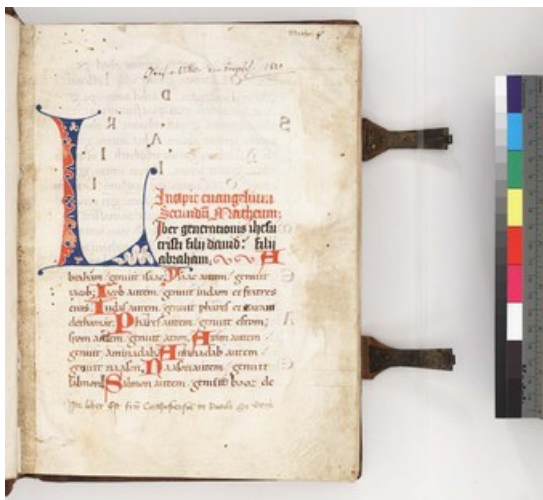 D
S
R
A
I
I
L
I
Incipit euangelium
Secundū Matheum:
Iber generationis ihesu
cristi filij dauid: filij
abraham: A
braham genuit isaac, Ysaac autem genuit
iacob, Iacob autem genuit iudam et fratres
eius Iudas autem genuit phares et zaram
dethamar, Phares autem genuit esrom,
esrom autem genuit aram, Aram autem
genuit aminadab Aminadab autem
genuit naason, Naason autem genuit
salmon, Salmon autem genuit booz de
Iste liber est